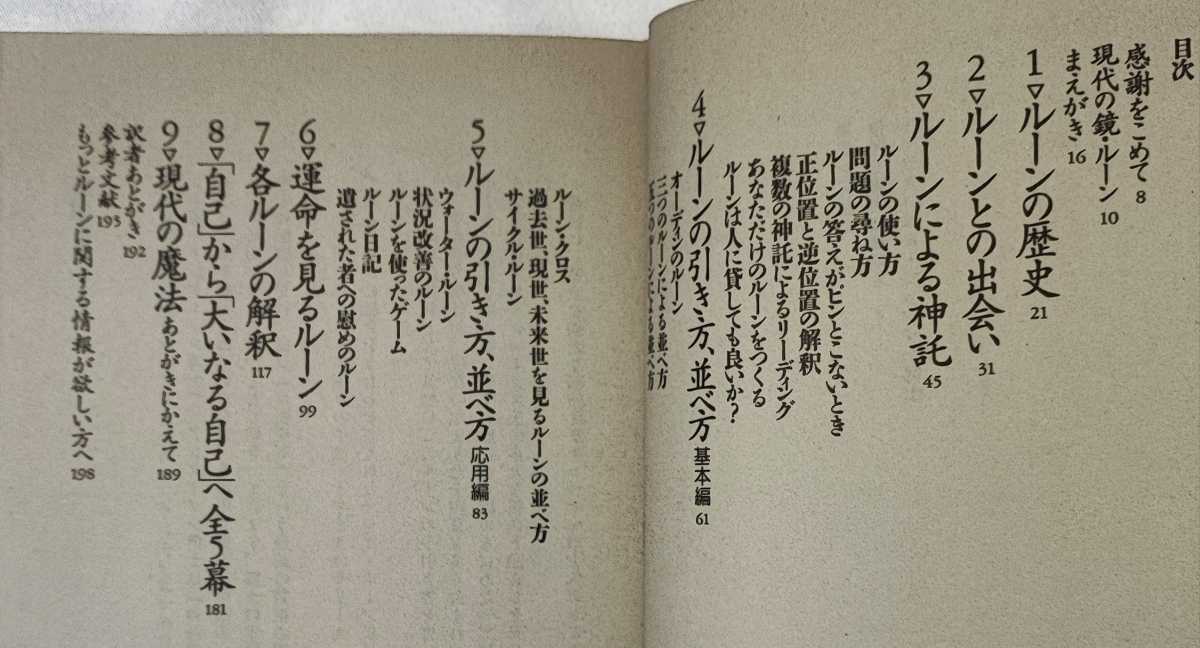 目次
感謝をこめて 8
現代の鏡・ルーン 10
まえがき 16
1▽ルーンの歴史 21
2▽ルーンとの出会い 31
3▽ルーンによる神託 45
ルーンの使い方
問題の尋ね方
ルーンの答えがピンとこないとき
正位置と逆位置の解釈
複数の神託によるリーディング
あなただけのルーンをつくる
ルーンは人に貸しても良いか?
4▽ルーンの引き方、並べ方 基本編 61
オーディンのルーン
三つのルーンによる並べ方
五つのルーンによる並べ方
ルーン・クロス
過去世、現世、未来世を見るルーンの並べ方
サイクル・ルーン
5▽ルーンの引き方、並べ方 応用編 83
ウォーター・ルーン
状況改善のルーン
ルーンを使ったゲーム
ルーン日記
遺された者への慰めのルーン
6▽運命を見るルーン 99
7▽各ルーンの解釈 117
8▽「自己」から「大いなる自己」へ 全5幕 181
9▽現代の魔法 あとがきにかえて 189
訳者あとがき 192
参考文献 195
もっとルーンに関する情報が欲しい方へ 198